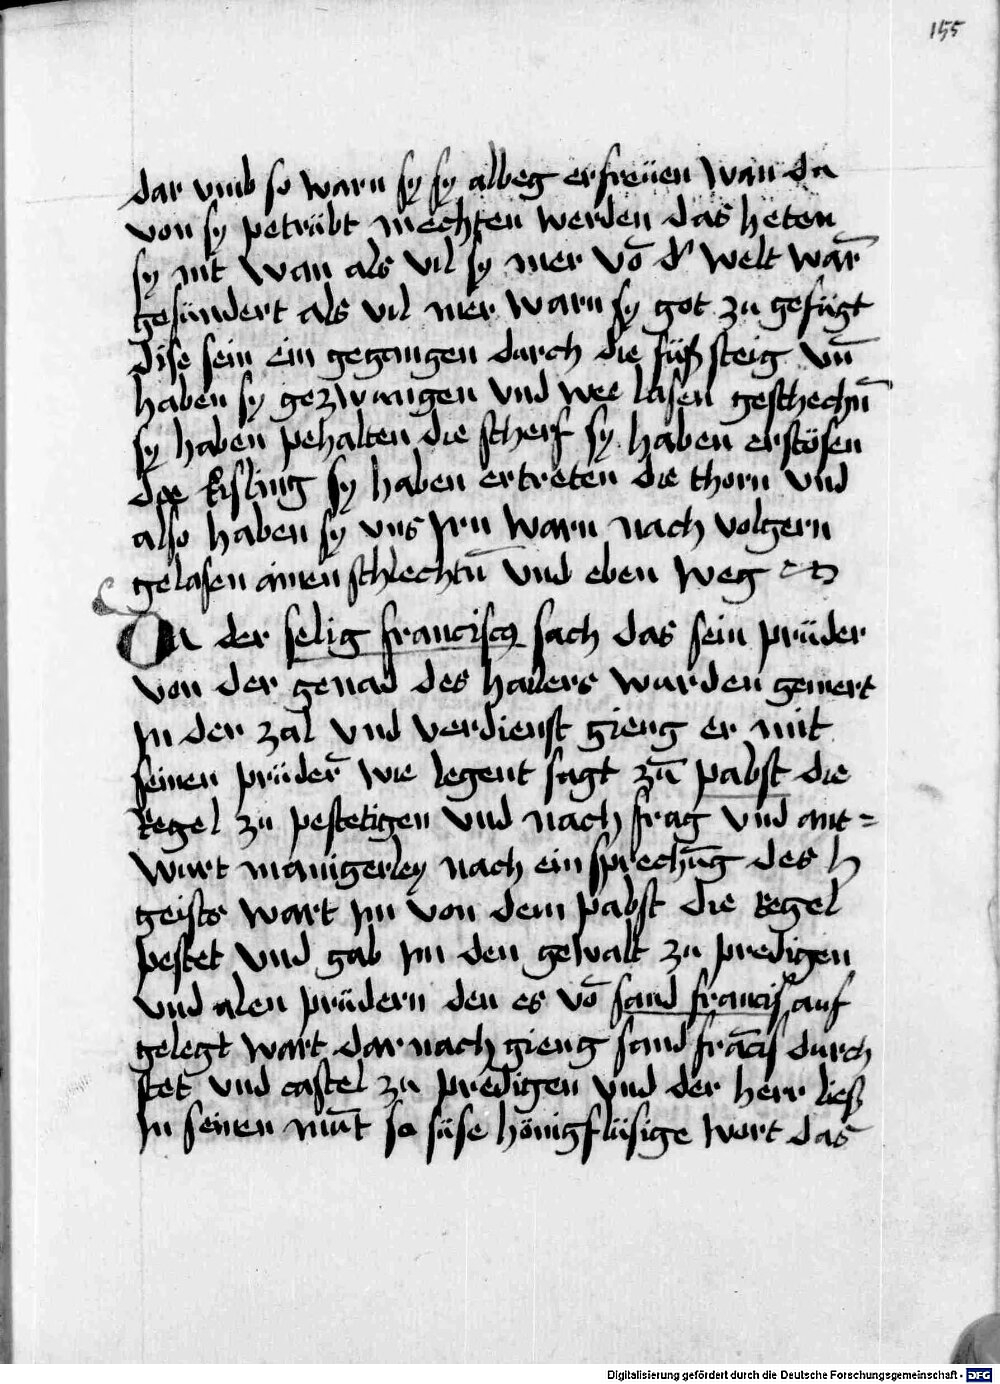 155
dar vmb so warn sy sy albeg erfreüen wan da
von sy petrübt mechten werden das heten
sy nit wan als vil sy mer vō d' welt warñ
gesündert als vil mer warn sy got zu gefügt
dise sein ein gegangen durch die füß steig vñ
haben sy gezwungen vnd wee lasen geschechñ
sy haben pehalten die scherf sy haben erstösen
die kisling sy haben ertreten die thorn vnd
also haben sy vns jrn warn nach volgern
gelasen ainen schlechtñ vnd eben weg
Da der selig francisc9 sach das sein prüder
von der genad des hailers wurden gemert
jn der zal vnd verdienst gieng er mit
seinen prüderñ wie legent sagt zū pabst die
Regel zu pestetigen vnd nach frag vnd ant=
wurt manigerley nach ein sprechūg des h
geists wart jm von dem pabst die Regel
pestet vnd gab jm den gewalt zu predigen
vnd alen prüdern den es vō sand francis auf
gelegt wart dar nach gieng sand frācis durch
stet vnd castel zu predigen vnd der herr ließ
jn seinen mūt so süse hönigflüsige wort das
Digitalisierung gefördert durch die Deutsche Forschungsgemeinschaft - DFG